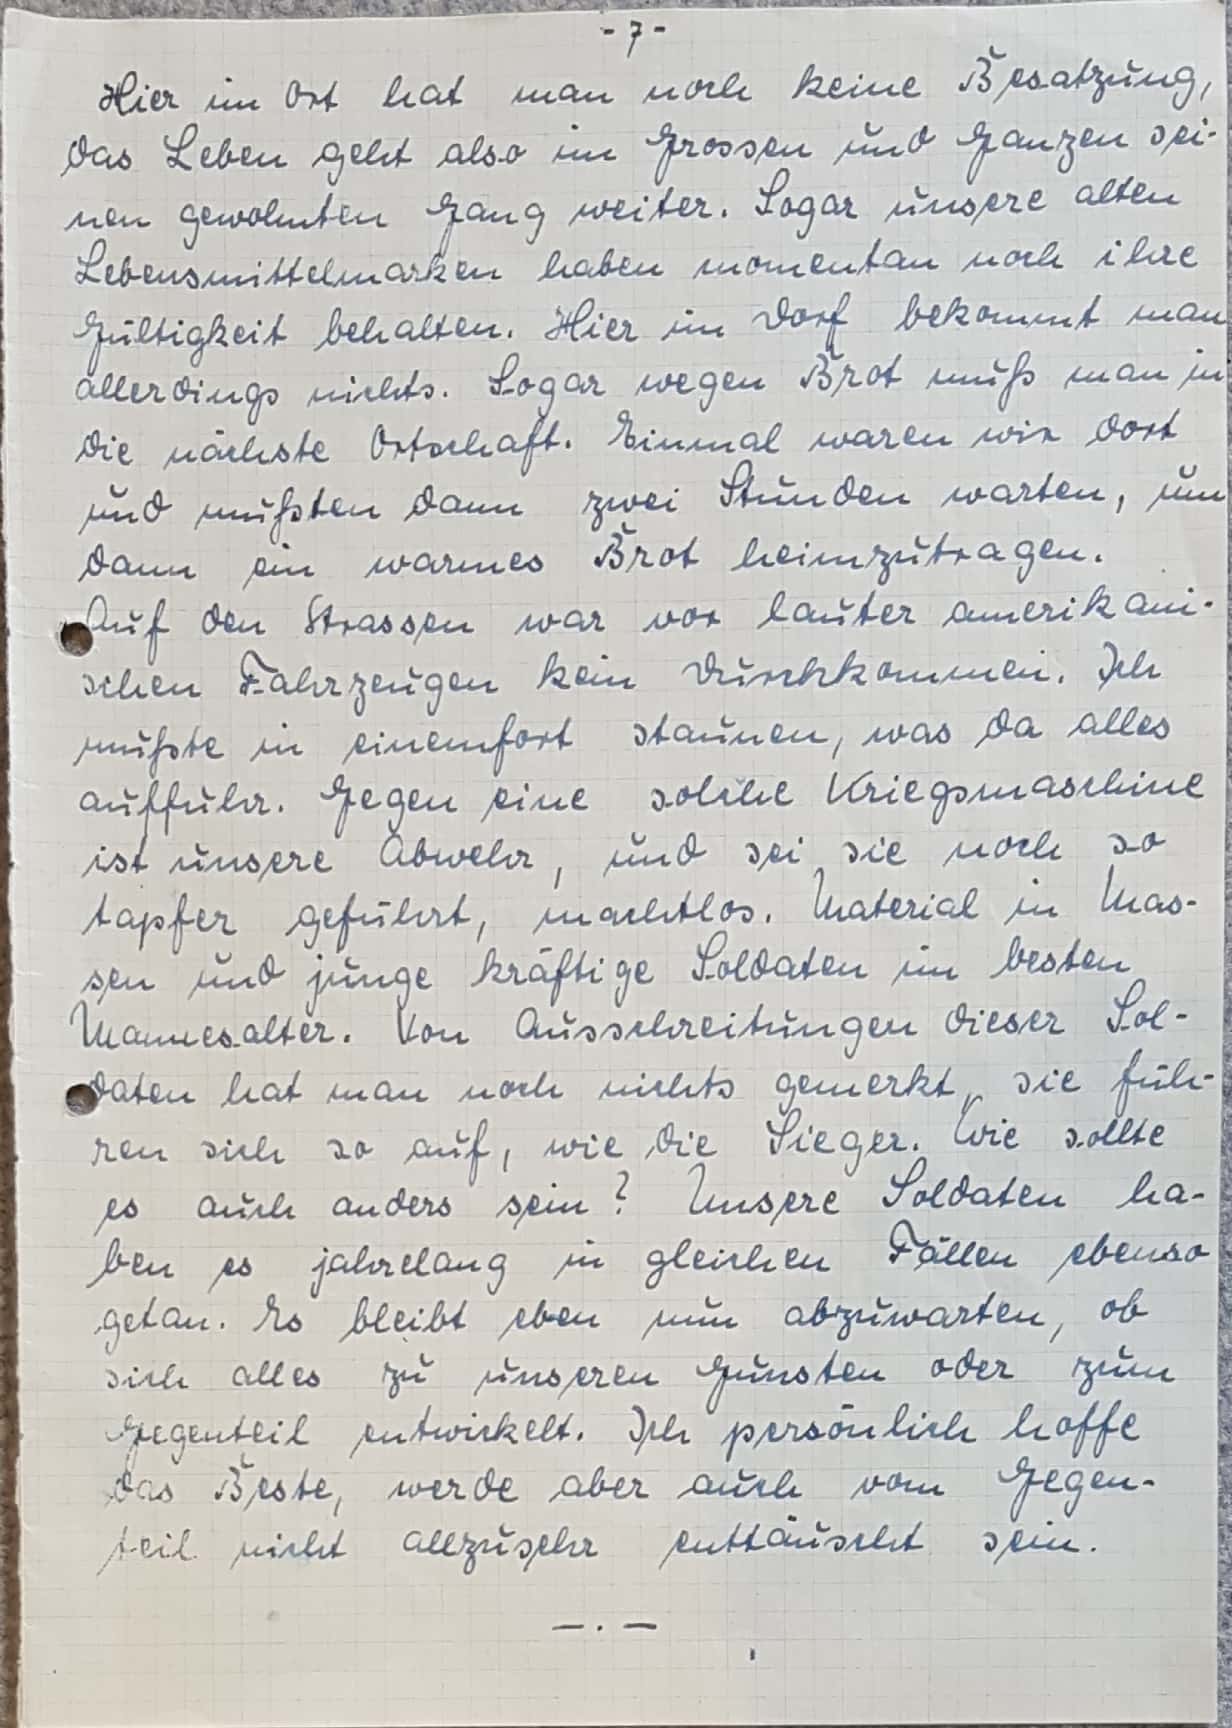 - 7 -
Hier im Ort hat man noch keine Besatzung,
das Leben geht also im Grossen und Ganzen sei-
nen gewohnten Gang weiter. Sogar unsere alten
Lebensmittelmarken haben momentan noch ihre
Gültigkeit behalten. Hier im Dorf bekommt man
allerdings nichts. Sogar wegen Brot muß man in
die nächste Ortschaft. Einmal waren wir dort
und mußten dann zwei Stunden warten, um
dann ein warmes Brot heimzutragen.
Auf den Strassen war vor lauter amerikani-
schen Fahrzeugen kein Durchkommen. Ich
mußte in einemfort staunen, was da alles
auffuhr. Gegen eine solche Kriegsmaschine
ist unsere Abwehr, und sei sie noch so
tapfer geführt, machtlos. Material in Mas-
sen und junge kräftige Soldaten im besten
Mannesalter. Von Ausschreitungen dieser Sol-
daten hat man noch nichts gemerkt, sie füh-
ren sich so auf, wie die Sieger. Wie sollte
es auch anders sein? Unsere Soldaten ha-
ben es jahrelang in gleichen Fällen ebenso
getan. Es bleibt eben nun abzuwarten, ob
sich alles zu unseren Gunsten oder zum
Gegenteil entwickelt. Ich persönlich hoffe
das Beste, werde aber auch vom Gegen-
teil nicht allzusehr enttäuscht sein.
— . —